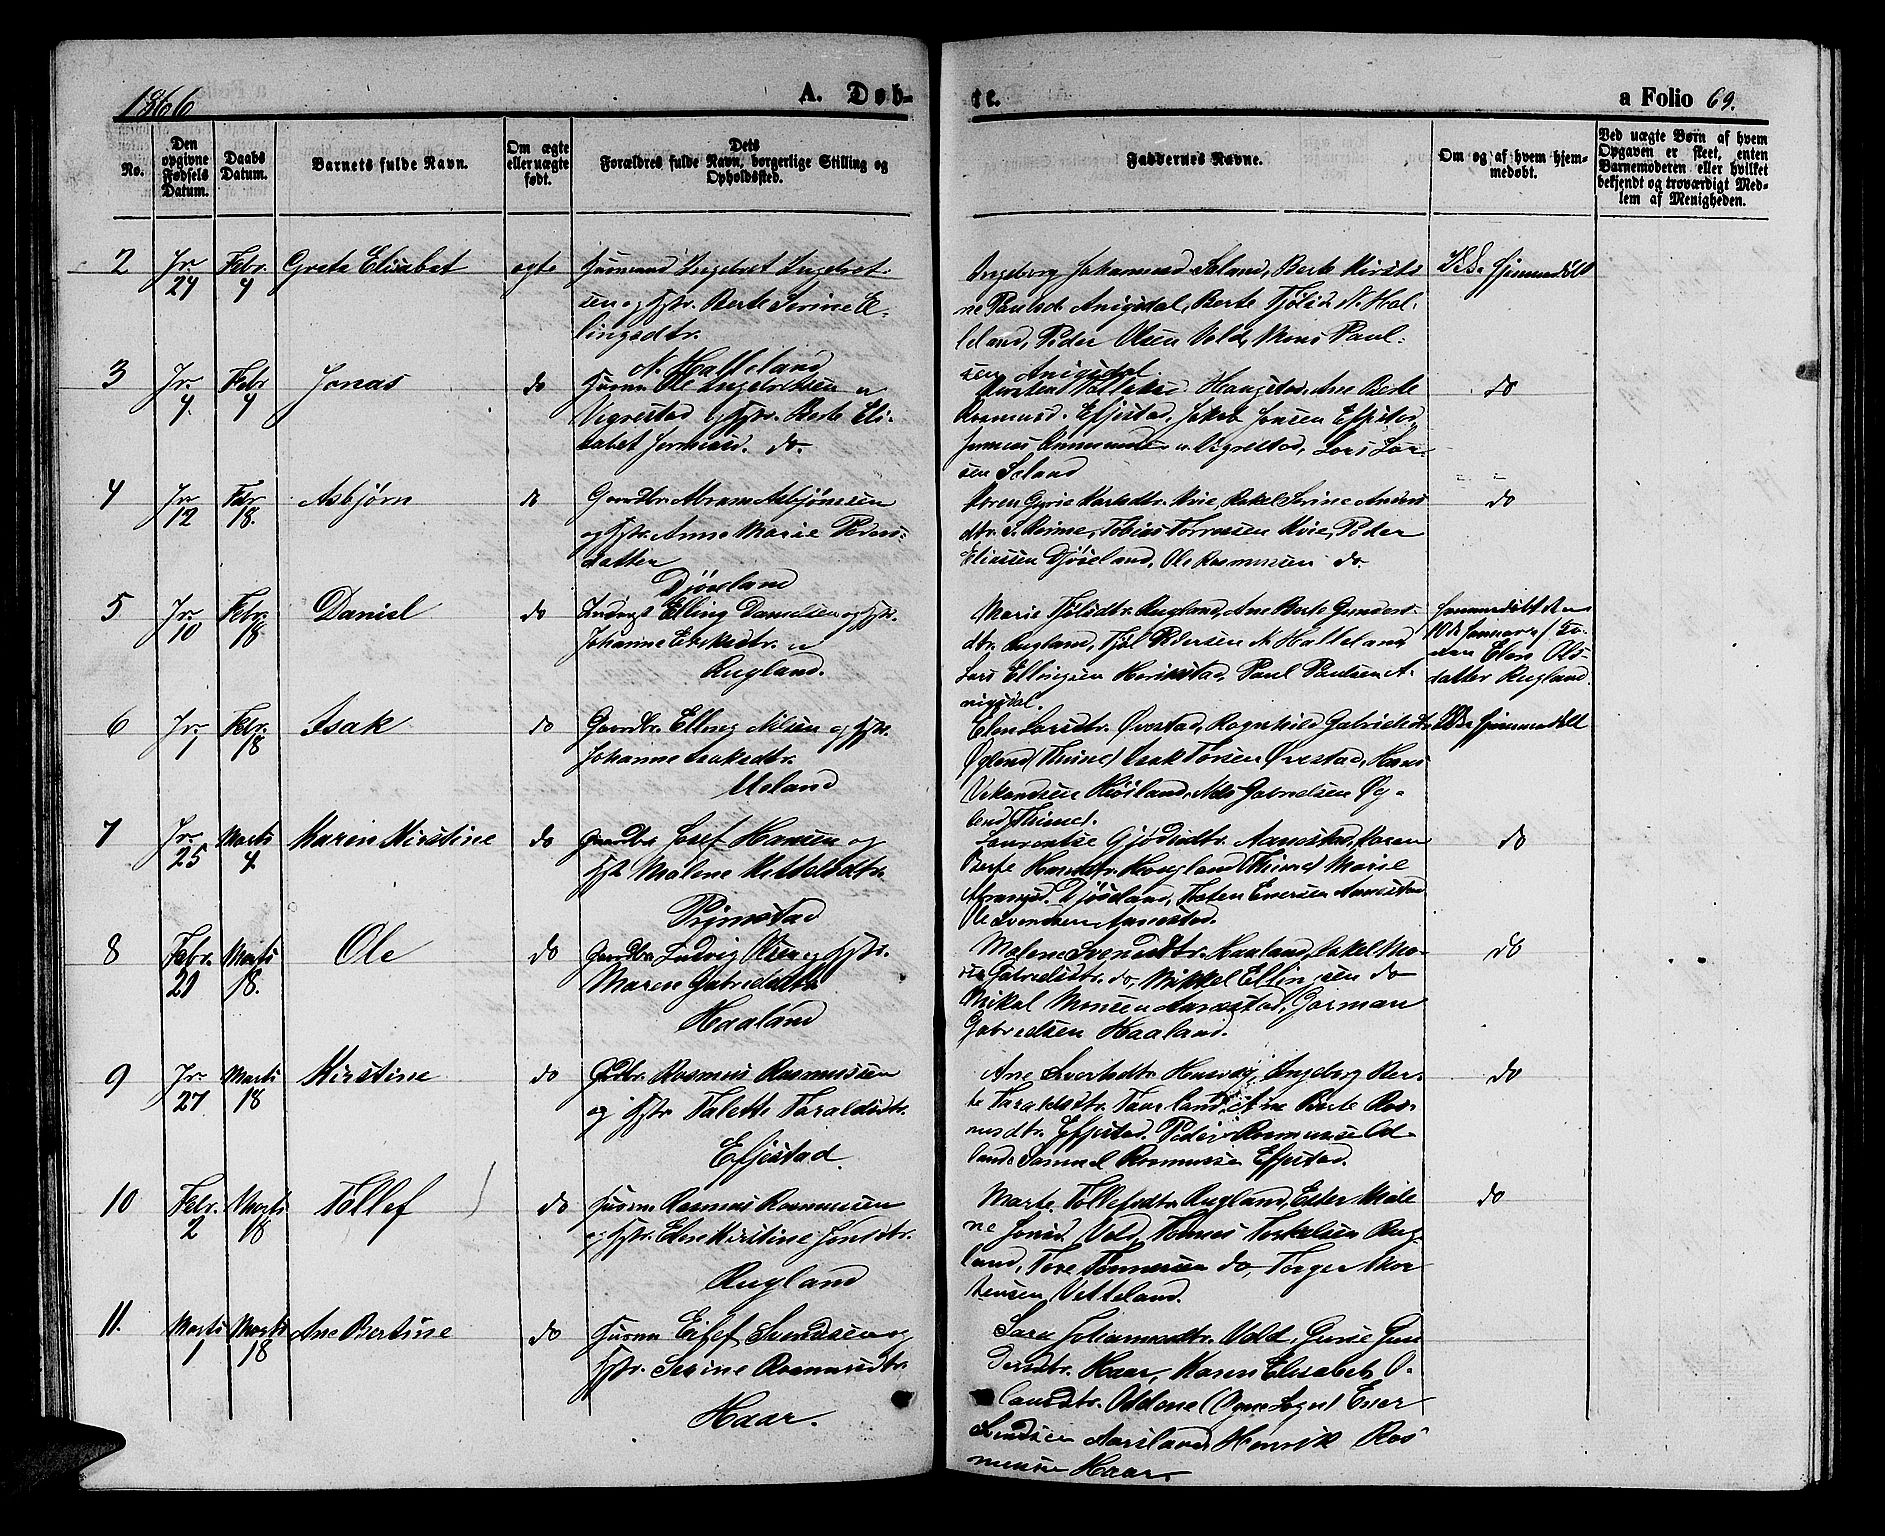 1866
A. Døb-
te.
a Folio 69.
No.
Den opgivne Fødsels Datum.
Daabs Datum.
Barnets fulde Navn.
Om ægte eller uægte født.
Dets Forældres fulde Navn, borgerlige Stilling og Opholdssted.
Faddernes Navne.
Om og af hvem hjemmedøbt.
Ved uægte Børn af hvem Opgaven er skeet, enten Barnemoderen eller hvilket bekjendt og troværdigt Medlem af Menigheden.
2 Jr. 24 Febr. 4 Grete Elisabet ægte Huusmand Ingebret Ingebret-
sen og Hstr. Berte Serine E-
lingsdtr.
N. Hatteland
Ingeborg Johannesd. Seland, Berte Kirsti-
ne Paulsd. Anigsdal, Berte Fjølsd. N. Hat-
teland, Peder Olsen Vold, Mons Paul-
sen Anigsdal.
Ikke hjemmedøbt
3 Jr. 4 Febr 4 Jonas do Huusm. Ole Ingebretsen
Vigrestad og Hstr. Berte Eli-
sabet do.
Haugstad, Ane Berte
Rasmusd. Efjestad, Jakob Jonsen Efjestad,
Vigrestad, Lars Lar-
sen Seland
do
4 Jr. 12 Febr 18. Asbjørn do Gaardbr. Abram Asbjønsen
og Hstr. Anne Marie Peders-
datter
Djøseland
Kvie, Rakel Serine
dtr. S. Reime, Tobias Torresen Kvie, Peder
Eliassen Djøseland, Ole Rasmussen do.
do
5 Jr. 10 Febr. 18. Daniel do Elling Danielsen og Hstr.
Johanne
Rugland.
Marie Fjølsdtr. Rugland, Ane Berte Gunders-
dtr. Rugland, Fjøl Pedersen N. Hatteland
Lars Ellingsen Paul Paulsen A-
nigsdal.
hjemmedøbt den
10de Januar af
Elen Ols-
datter Rugland.
6 Jr. 1 Febr. 18 Isak do Gaardbr. Elling Nilsen og Hstr.
Johanne Isaksdtr.
Ueland
Elen Larsdtr. Øvestad, Ragnhild Gabrielsdtr.
Øgland (Thime) Isak Torsen Øvestad, Hans
Nils Gabrielsen Øg-
land (Thime).
Ikke hjemmedøbt
7 Jr. 25 Marts 4. Karen Kirstine do Gaardbr. Josef Hansen og
Hstr. Malene Kittelsdtr.
Prjmstad
Laurentse Gjødesdtr. Aanestad, Karen
Berte Hansdtr. Haugland (Thime) Marie
Djøseland, Enersen Aanestad
Ole Svendsen Aanestad.
do
8 Febr. 21 Marts 18. Ole do Gaardbr. Ludvig Olsen og Hstr.
Maren Gabrielsdtr.
Haaland
Malene Svendsdtr. Haaland, Rakel Ma-
rie Gabrielsdtr. do, Mikkel Ellingsen do
Mikal Monsen Aanestad, Gorman
Gabrielsen Haaland.
do
9 Jr. 27 Marts 18 Kirstine do Gdbr. Rasmus Rasmussen
og Hstr. Talette Taraldsdtr.
Efjestad.
Ane Sivertsdtr. Husvæg, Ingeborg Ber-
te Taraldsdtr. Taarland, Ane Berte Ras-
musdtr. Efjestad. Peder Rasmussen Od-
land Samuel Rasmussen Efjestad.
do
10 Febr. 2 Marts 18 Tollef do Huusm Rasmus Rasmussen
og Hstr. Elen Kirstine Jonsdtr.
Rugland
Marte Tollefsdtr. Rugland, Ester Male-
ne Jonsd. Vold, Tønnes Torkelsen Rug-
land, Tore Tønnesen do, Torger Mor-
tensen Vetteland.
do
11. Marts 1 Marts 18 Ane Bertine do Huusm Eilef Svendsen og
Hstr. Serine Rasmusdtr.
Haar.
Sara Johannesdtr. Vold, Gurie Gun-
dersdtr. Haar, Karen Elisabet O-
landsdtr. Udlene (Ogne Sogn) Ener
Svendsen Aarsland, Henrik Ras-
mussen Haar.